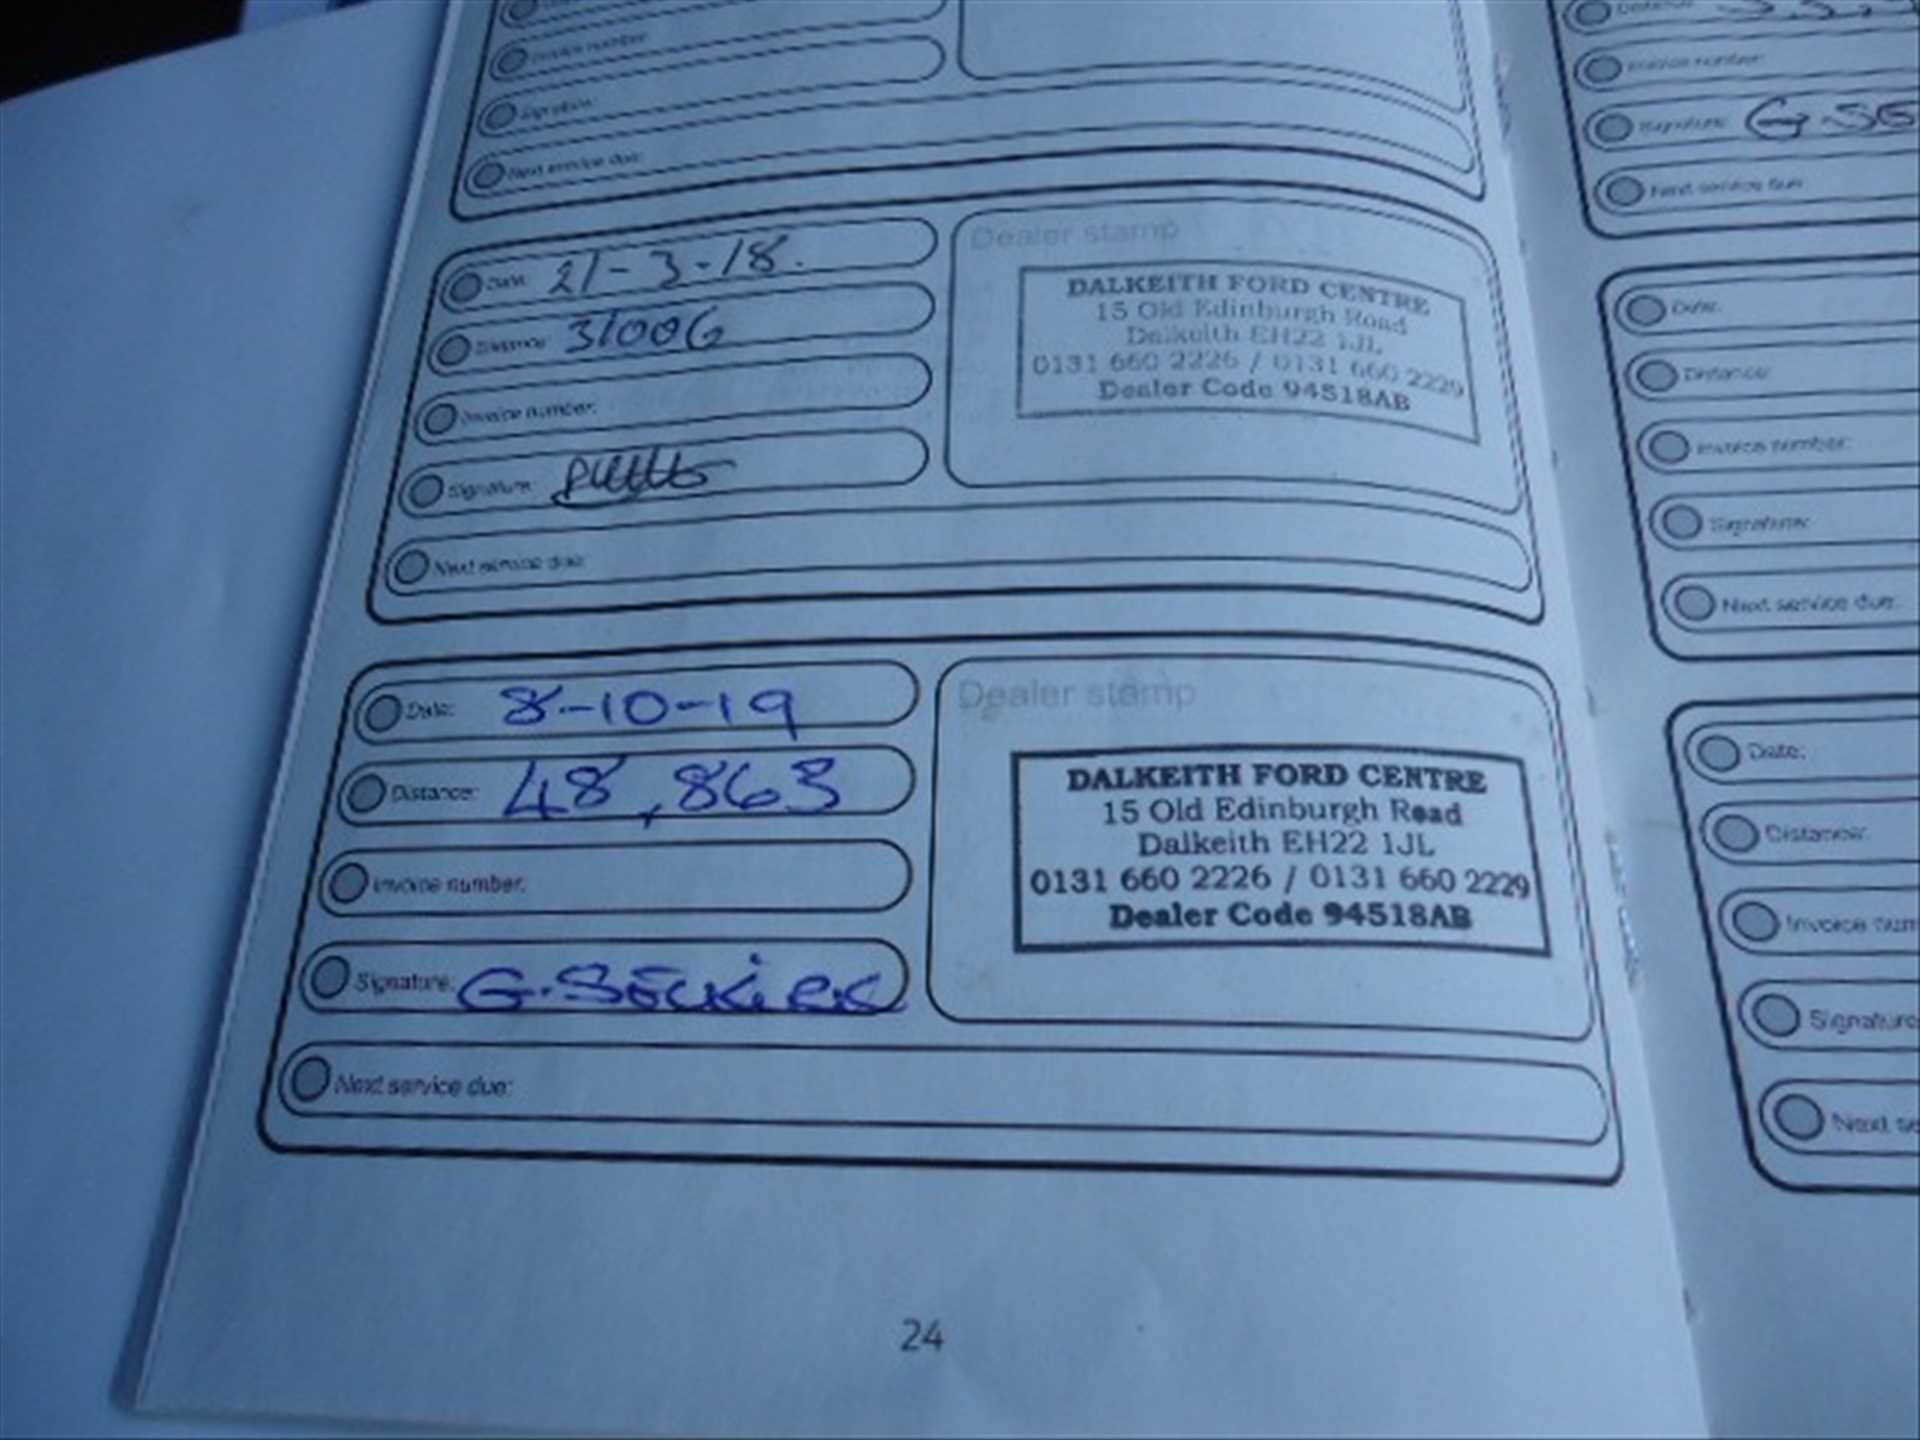 Invoice number:
Signature:
Next service due:
Date: 21-3-18.
Distance: 31006
Invoice number:
Signature:
Next service due:
Dealer stamp
DALKEITH FORD CENTRE
15 Old Edinburgh Road
Dalkeith EH22 1JL
0131 660 2226 / 0131 660 2229
Dealer Code 94518AB
Date: 8-10-19
Distance: 48,863
Invoice number:
Signature: G.
Next service due:
Dealer stamp
DALKEITH FORD CENTRE
15 Old Edinburgh Road
Dalkeith EH22 1JL
0131 660 2226 / 0131 660 2229
Dealer Code 94518AB
24
Distance:
Invoice number:
Signature:
Next service due:
Date:
Distance:
Invoice number:
Signature:
Next service due:
Date:
Distance:
Invoice num
Signature
Next se